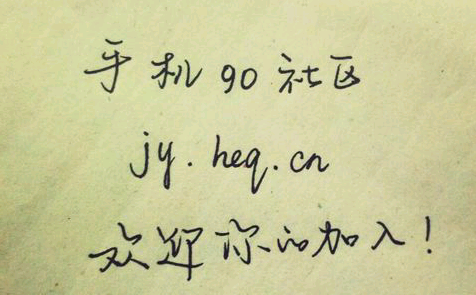 手机90社区
jy.heq.cn
欢迎你的加入!